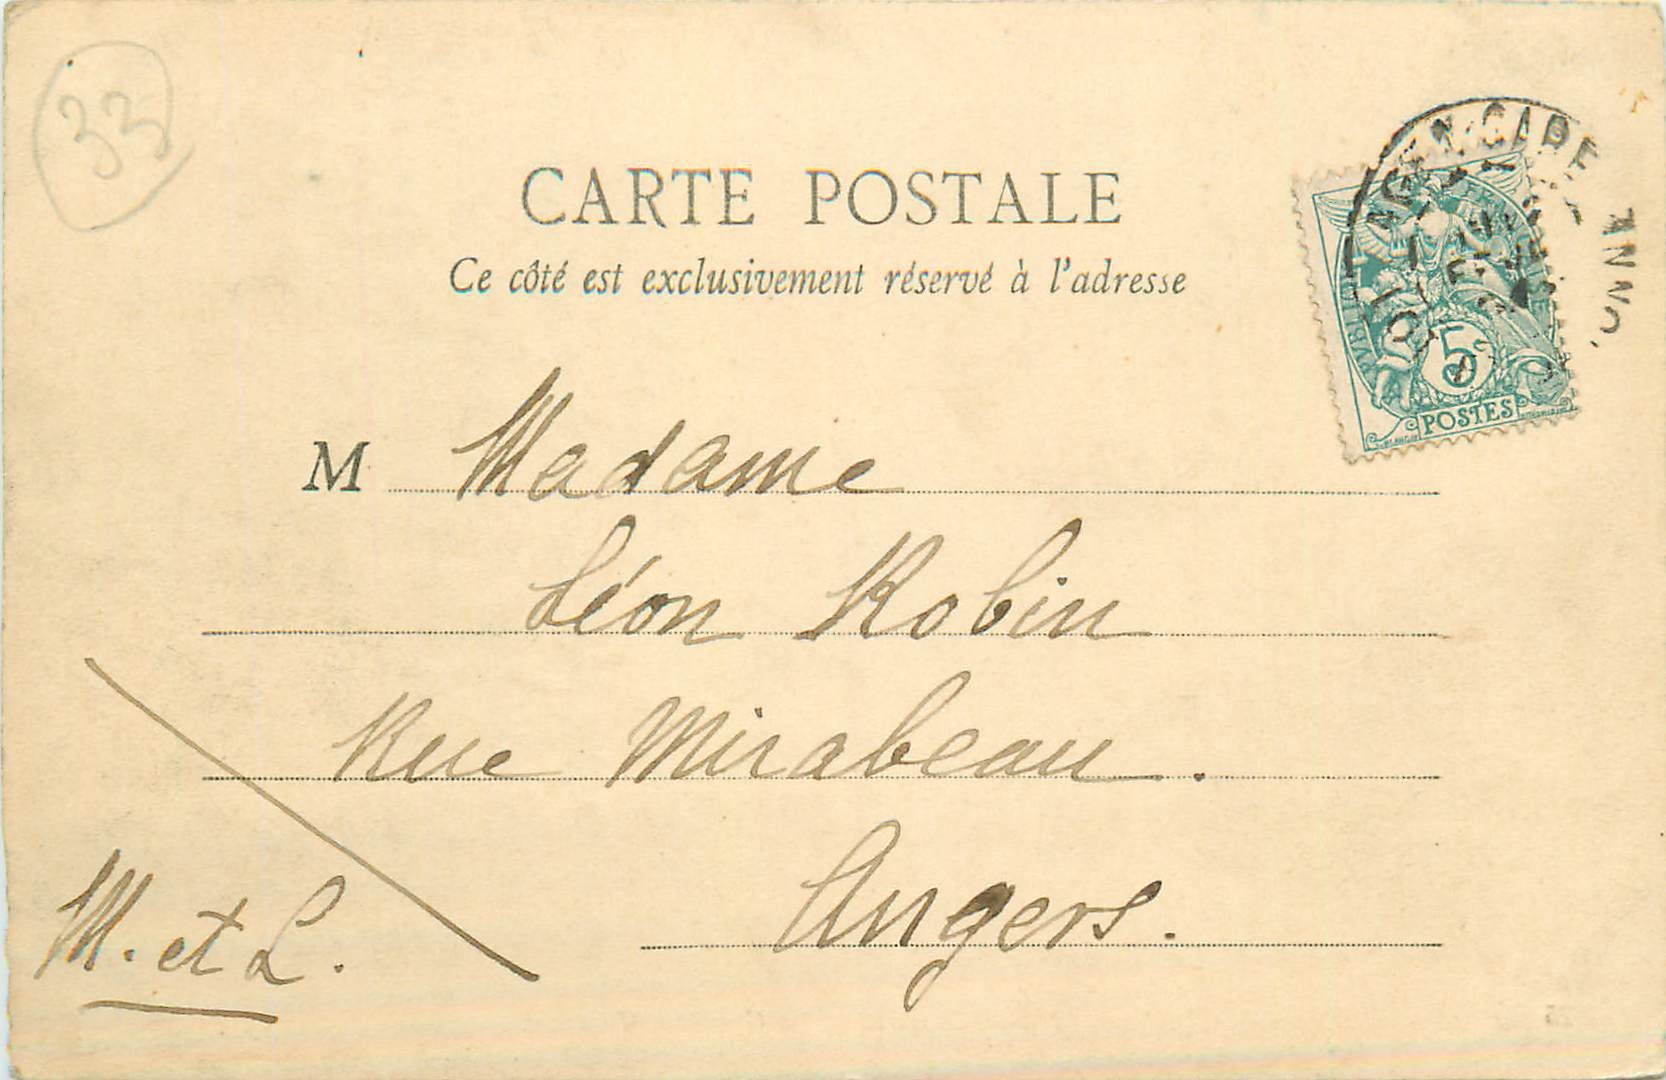 33
CARTE POSTALE
Ce côté est exclusivement réservé à l'adresse
5c
POSTES
M Madame
Léon Robin
Rue Mirabeau.
Angers.
M. et L.